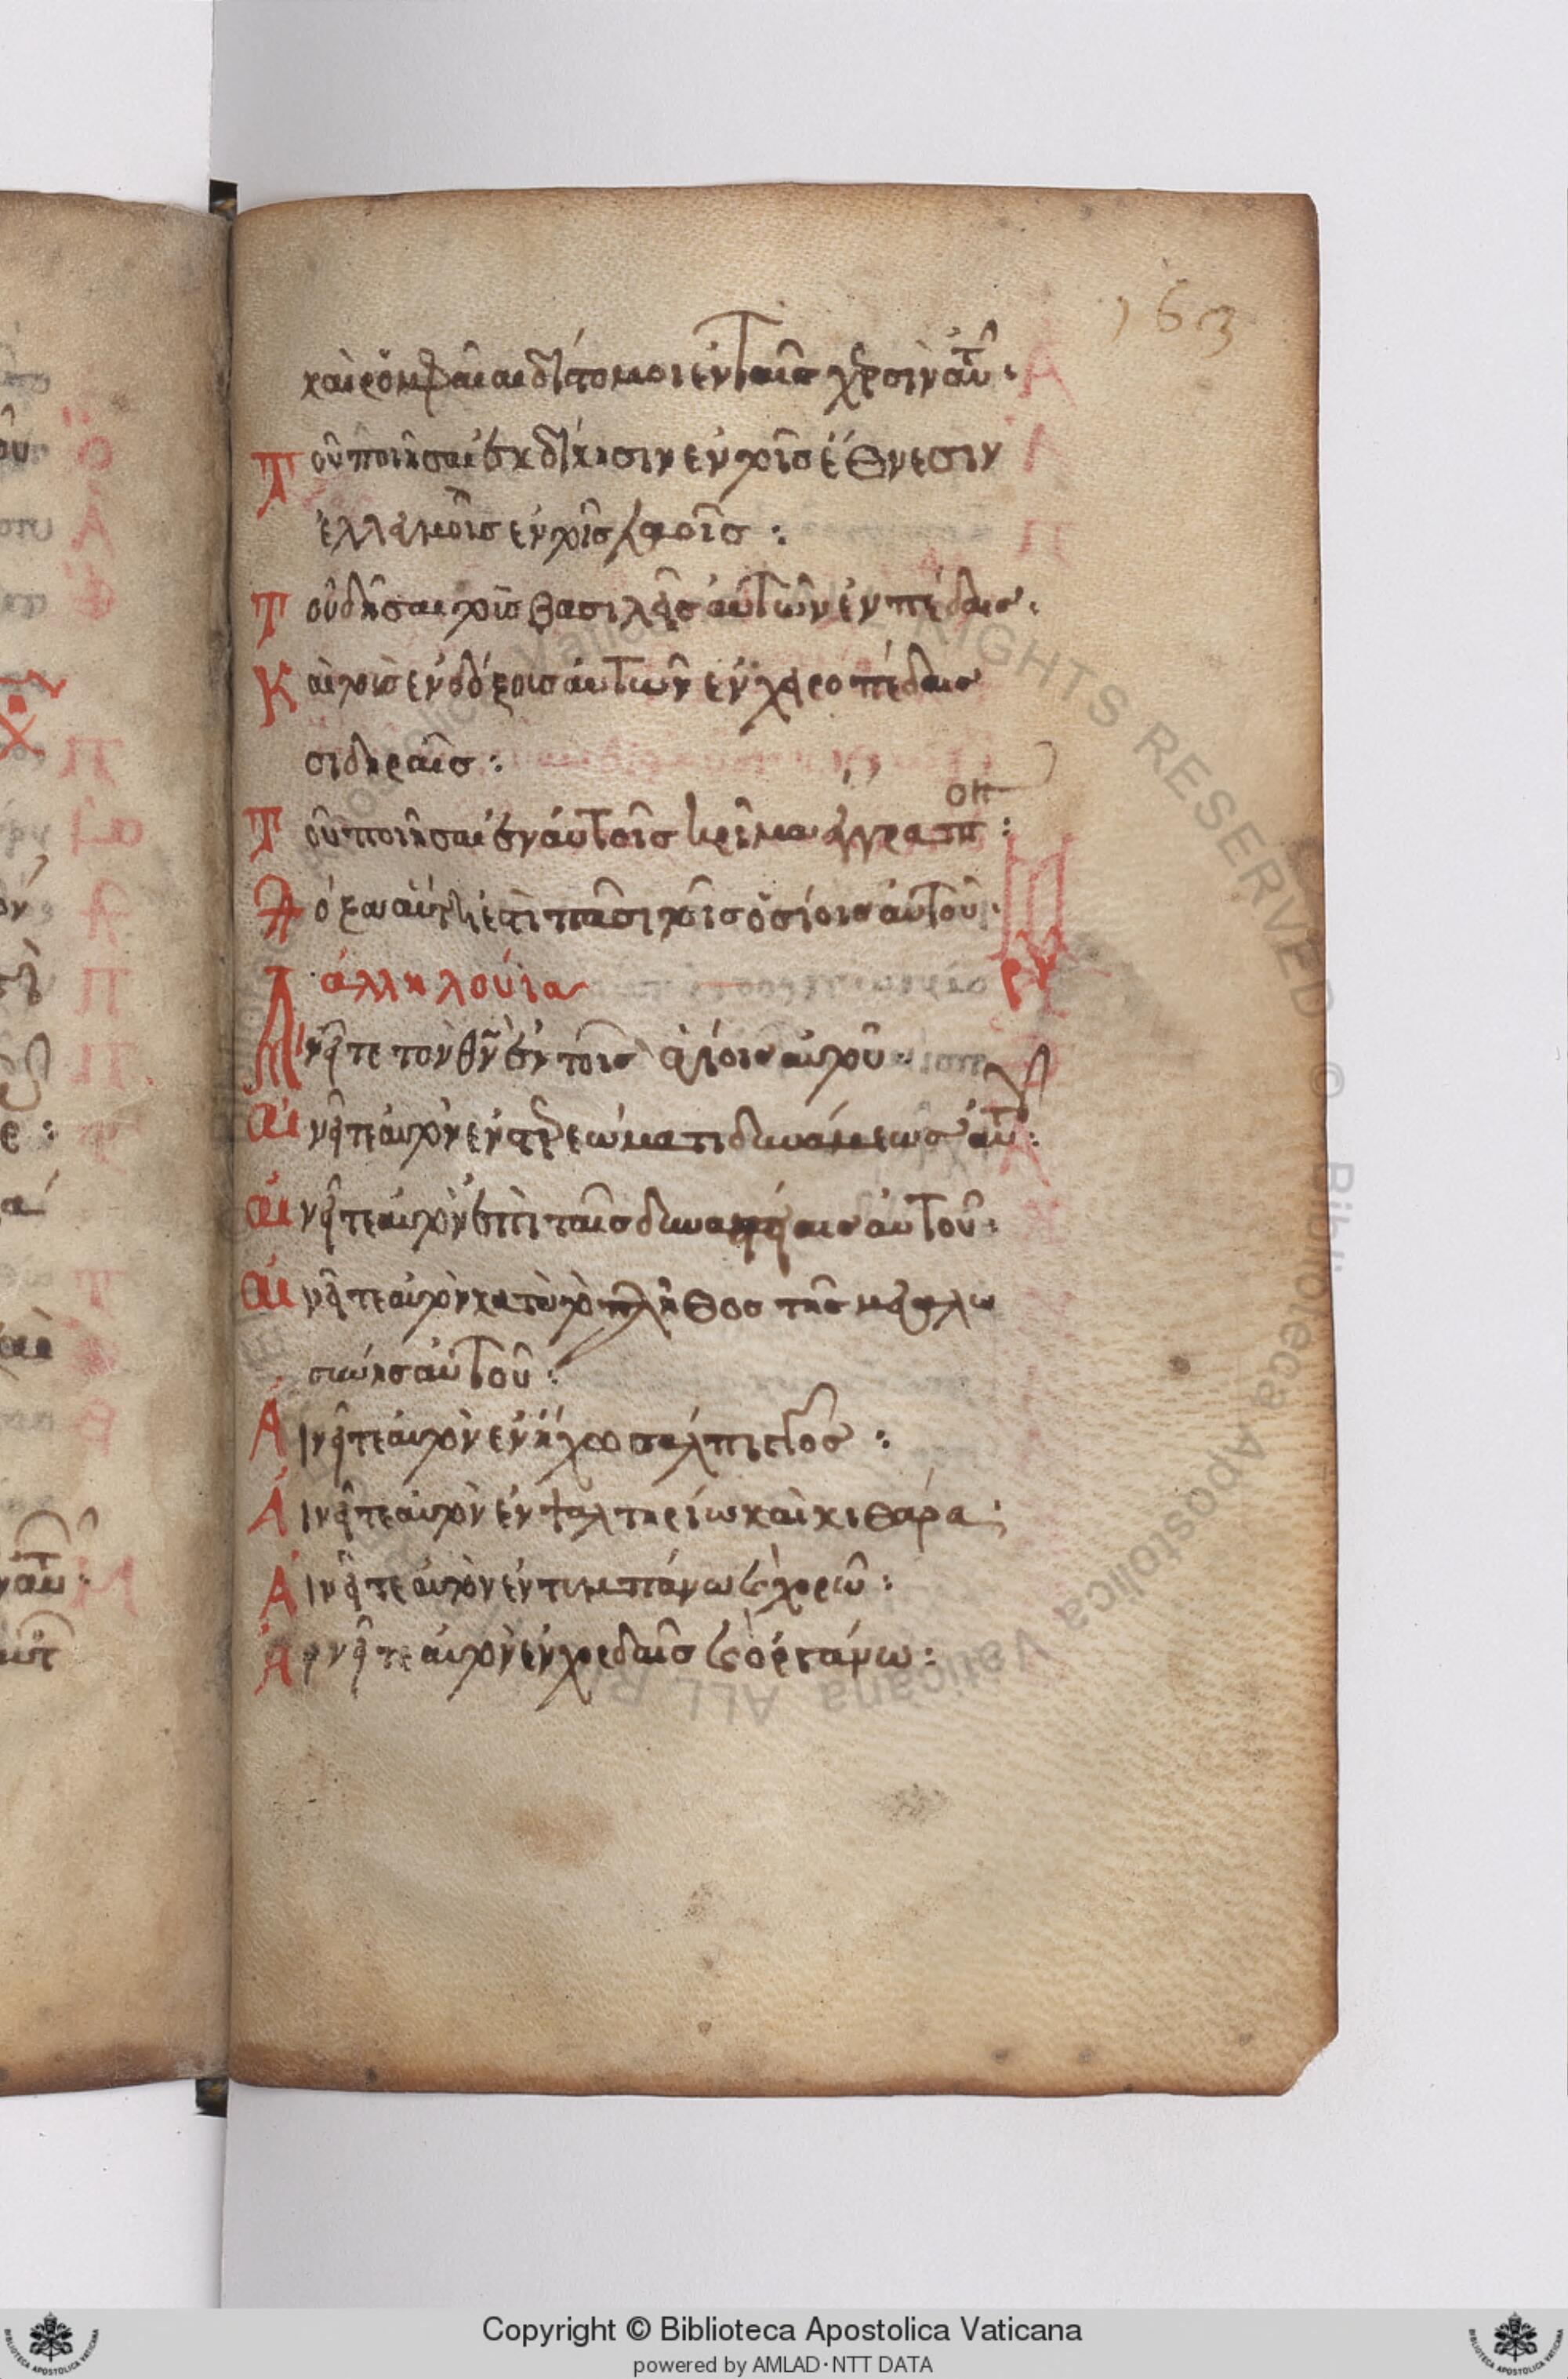 163
καὶ ῥομφαῖαι δίστομοι ἐν ταῖς χερσὶν αὐτ(οῦ):
Τοῦ ποιῆσαι ἐκδίκησιν ἐν τοῖς ἔθνεσιν
ἐλλεγμοῖς ἐν τοῖς λαοῖς:
Τοῦ δῆσαι τοὺς βασιλεῖς αὐτῶν ἐν πέδαις:
Καὶ τοὺς ἐνδόξους αὐτῶν ἐν χειροπέδαις
σιδηραῖς:
Τοῦ ποιῆσαι ἐν αὐτοῖς κρῖμα ἔγγραπτον:
Δόξα αὕτη ἐστὶ πᾶσι τοῖς ὁσίοις αὐτοῦ:
ἀλληλούια ρν
Αἰνεῖτε τὸν θν ἐν τοῖς ἁγίοις αὐτοῦ:
αἰνεῖτε αὐτὸν ἐν στερεώματι δυνάμεως αὐτοῦ:
αἰνεῖτε αὐτὸν ἐπὶ ταῖς δυναστείαις αὐτοῦ:
αἰνεῖτε αὐτὸν κατὰ τὸ πλῆθος τῆς μεγαλω
σύνης αὐτοῦ:
Αἰνεῖτε αὐτὸν ἐν ἤχῳ σάλπιγγος:
Αἰνεῖτε αὐτὸν ἐν ψαλτηρίω καὶ κιθάρα:
Αἰνεῖτε αὐτὸν ἐν τυμπάνω κ χορῶ:
Αἰνεῖτε αὐτὸν ἐν χορδαῖς κ ὀργάνω:
Copyright © Biblioteca Apostolica Vaticana
powered by AMLAD·NTT DATA